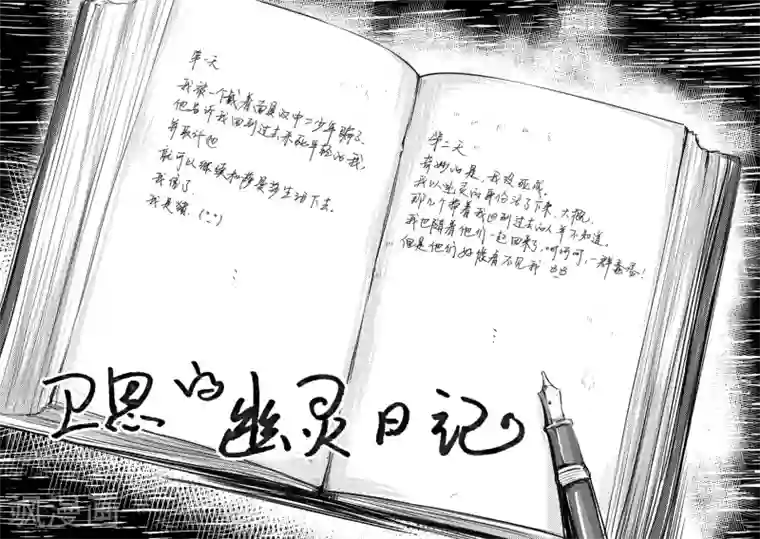 第一天
我被一个戴着面具的中二少年骗了.
他告诉我回到过去杀死年轻的我,
并取代他
就可以继续和莎曼莎生活下去.
我信了.
我是猪.(··)
⋮
第二天
奇妙的是,我没死成.
我以幽灵的身份活了下来,大概.
那几个带着我回到过去的人并不知道.
我也随着他们一起回来了,呵呵呵,一群蠢蛋!
但是他们好像看不见我
⋮
卫思的幽灵日记
飒漫画